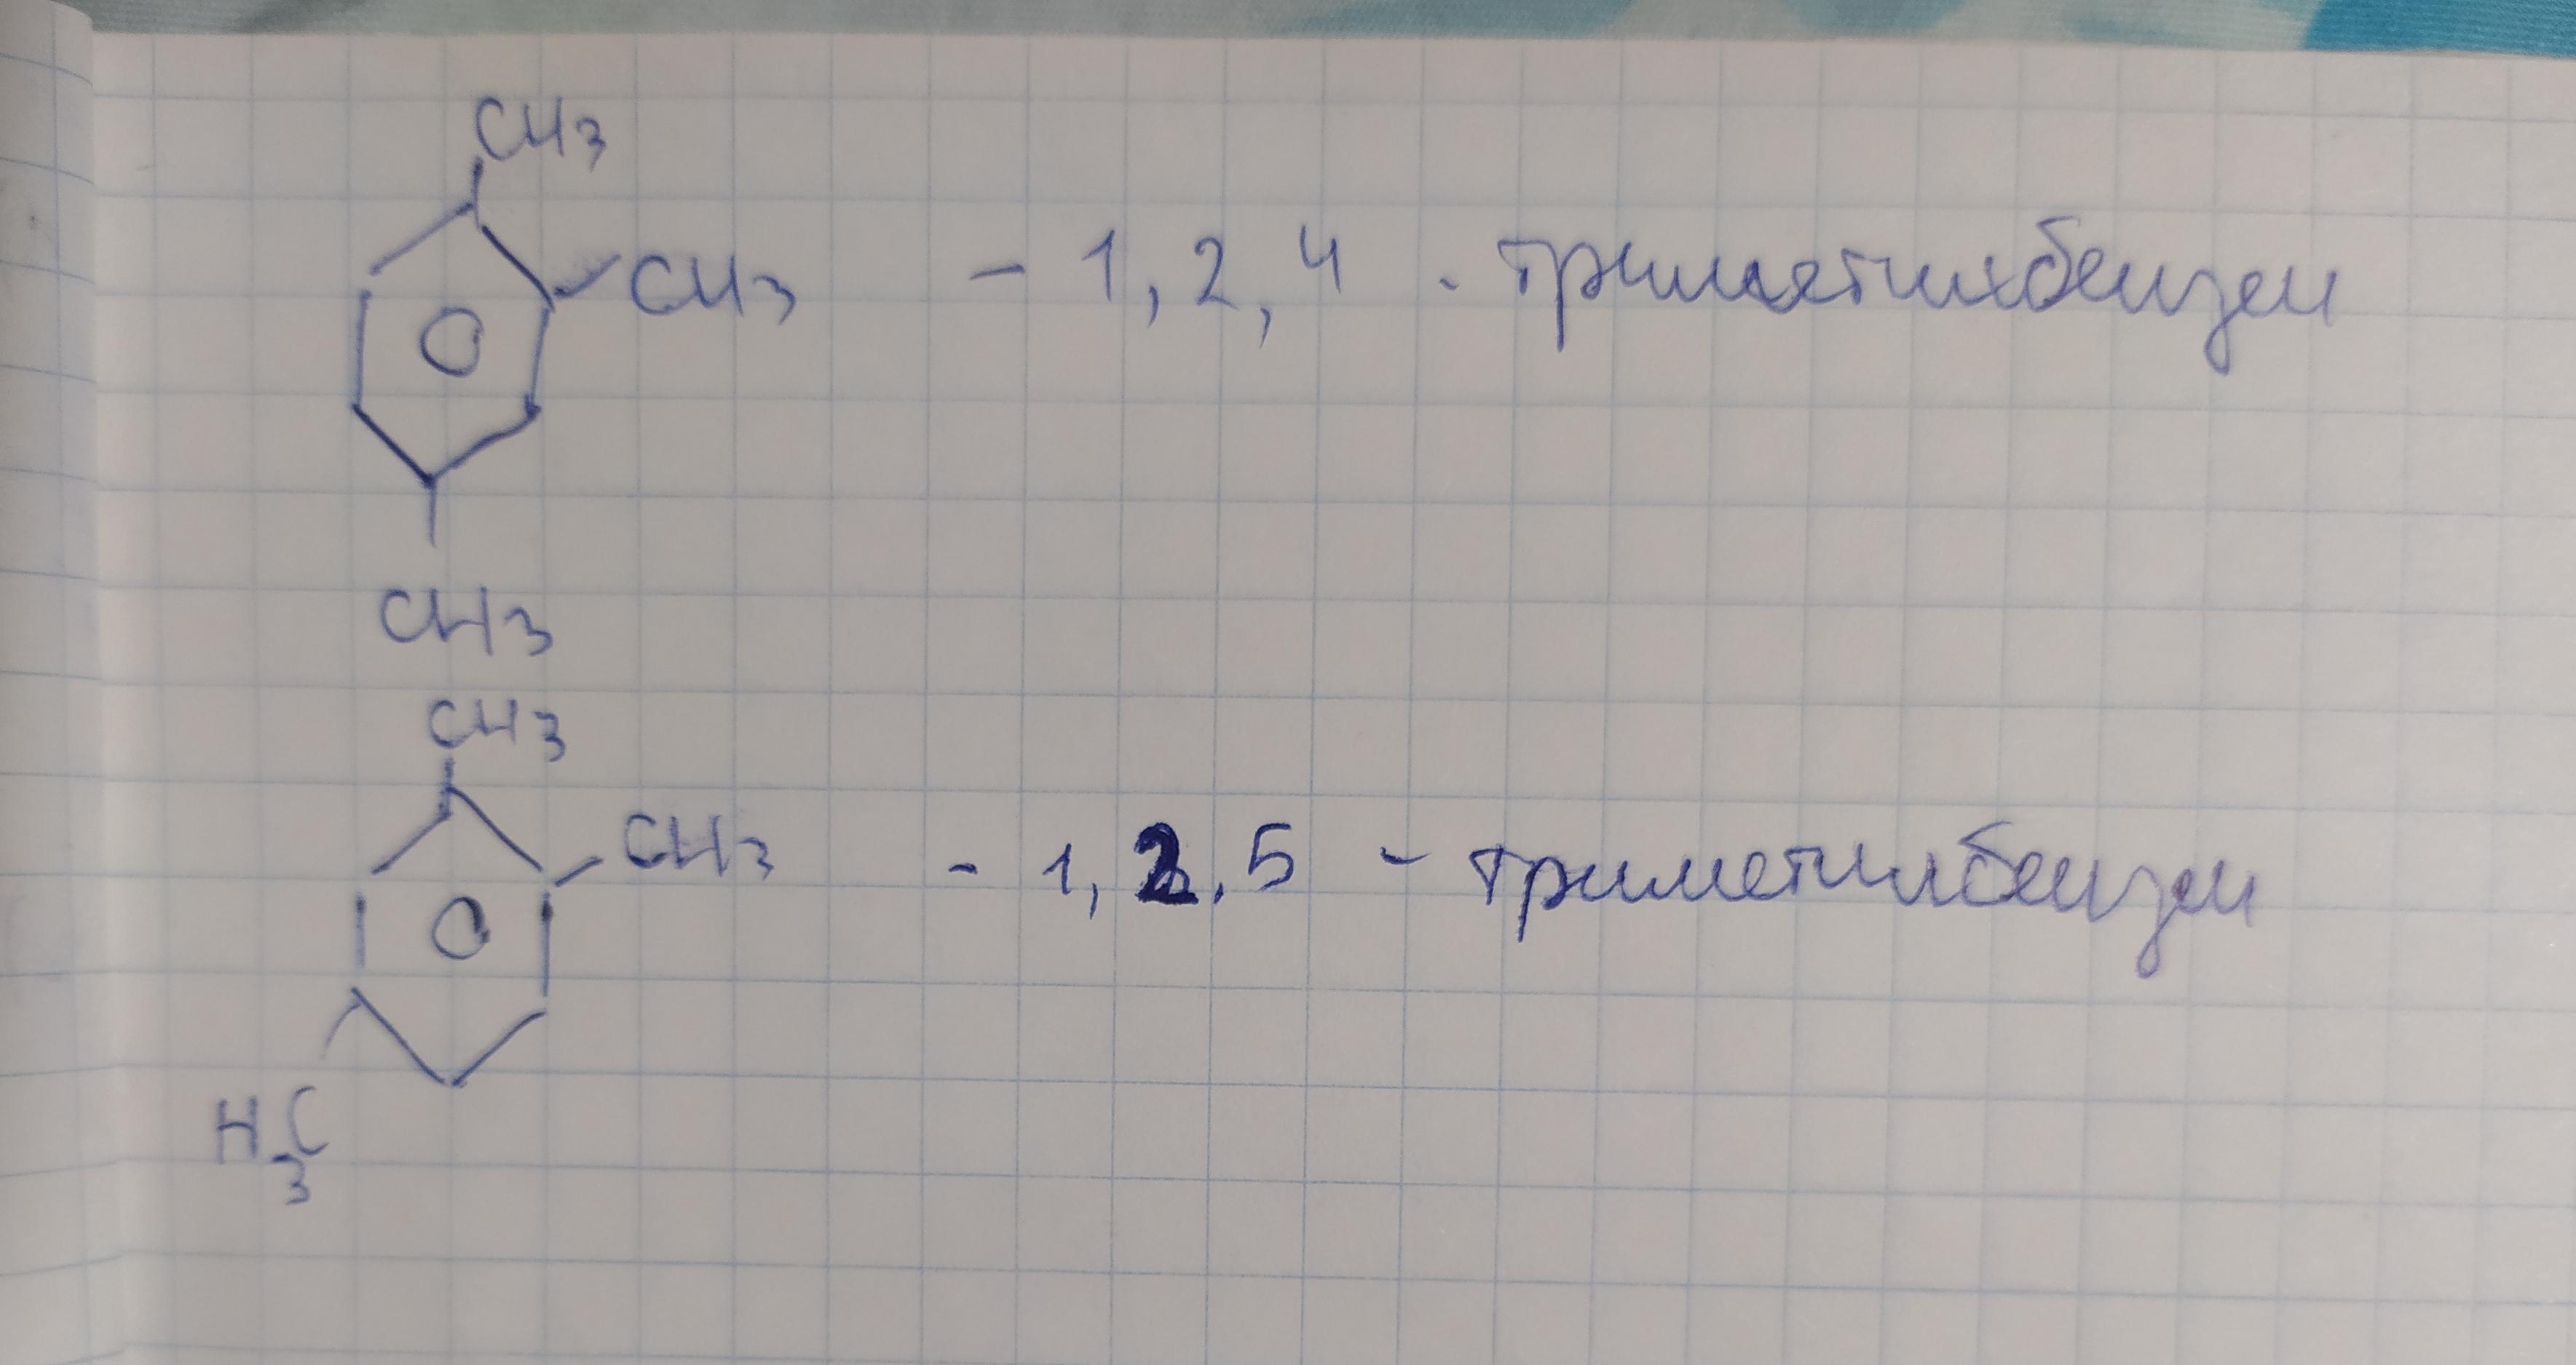 CH3
CH3 - 1, 2, 4 - триметилбензен
CH3
CH3
CH3 - 1, 2, 5 - триметилбензен
H3C